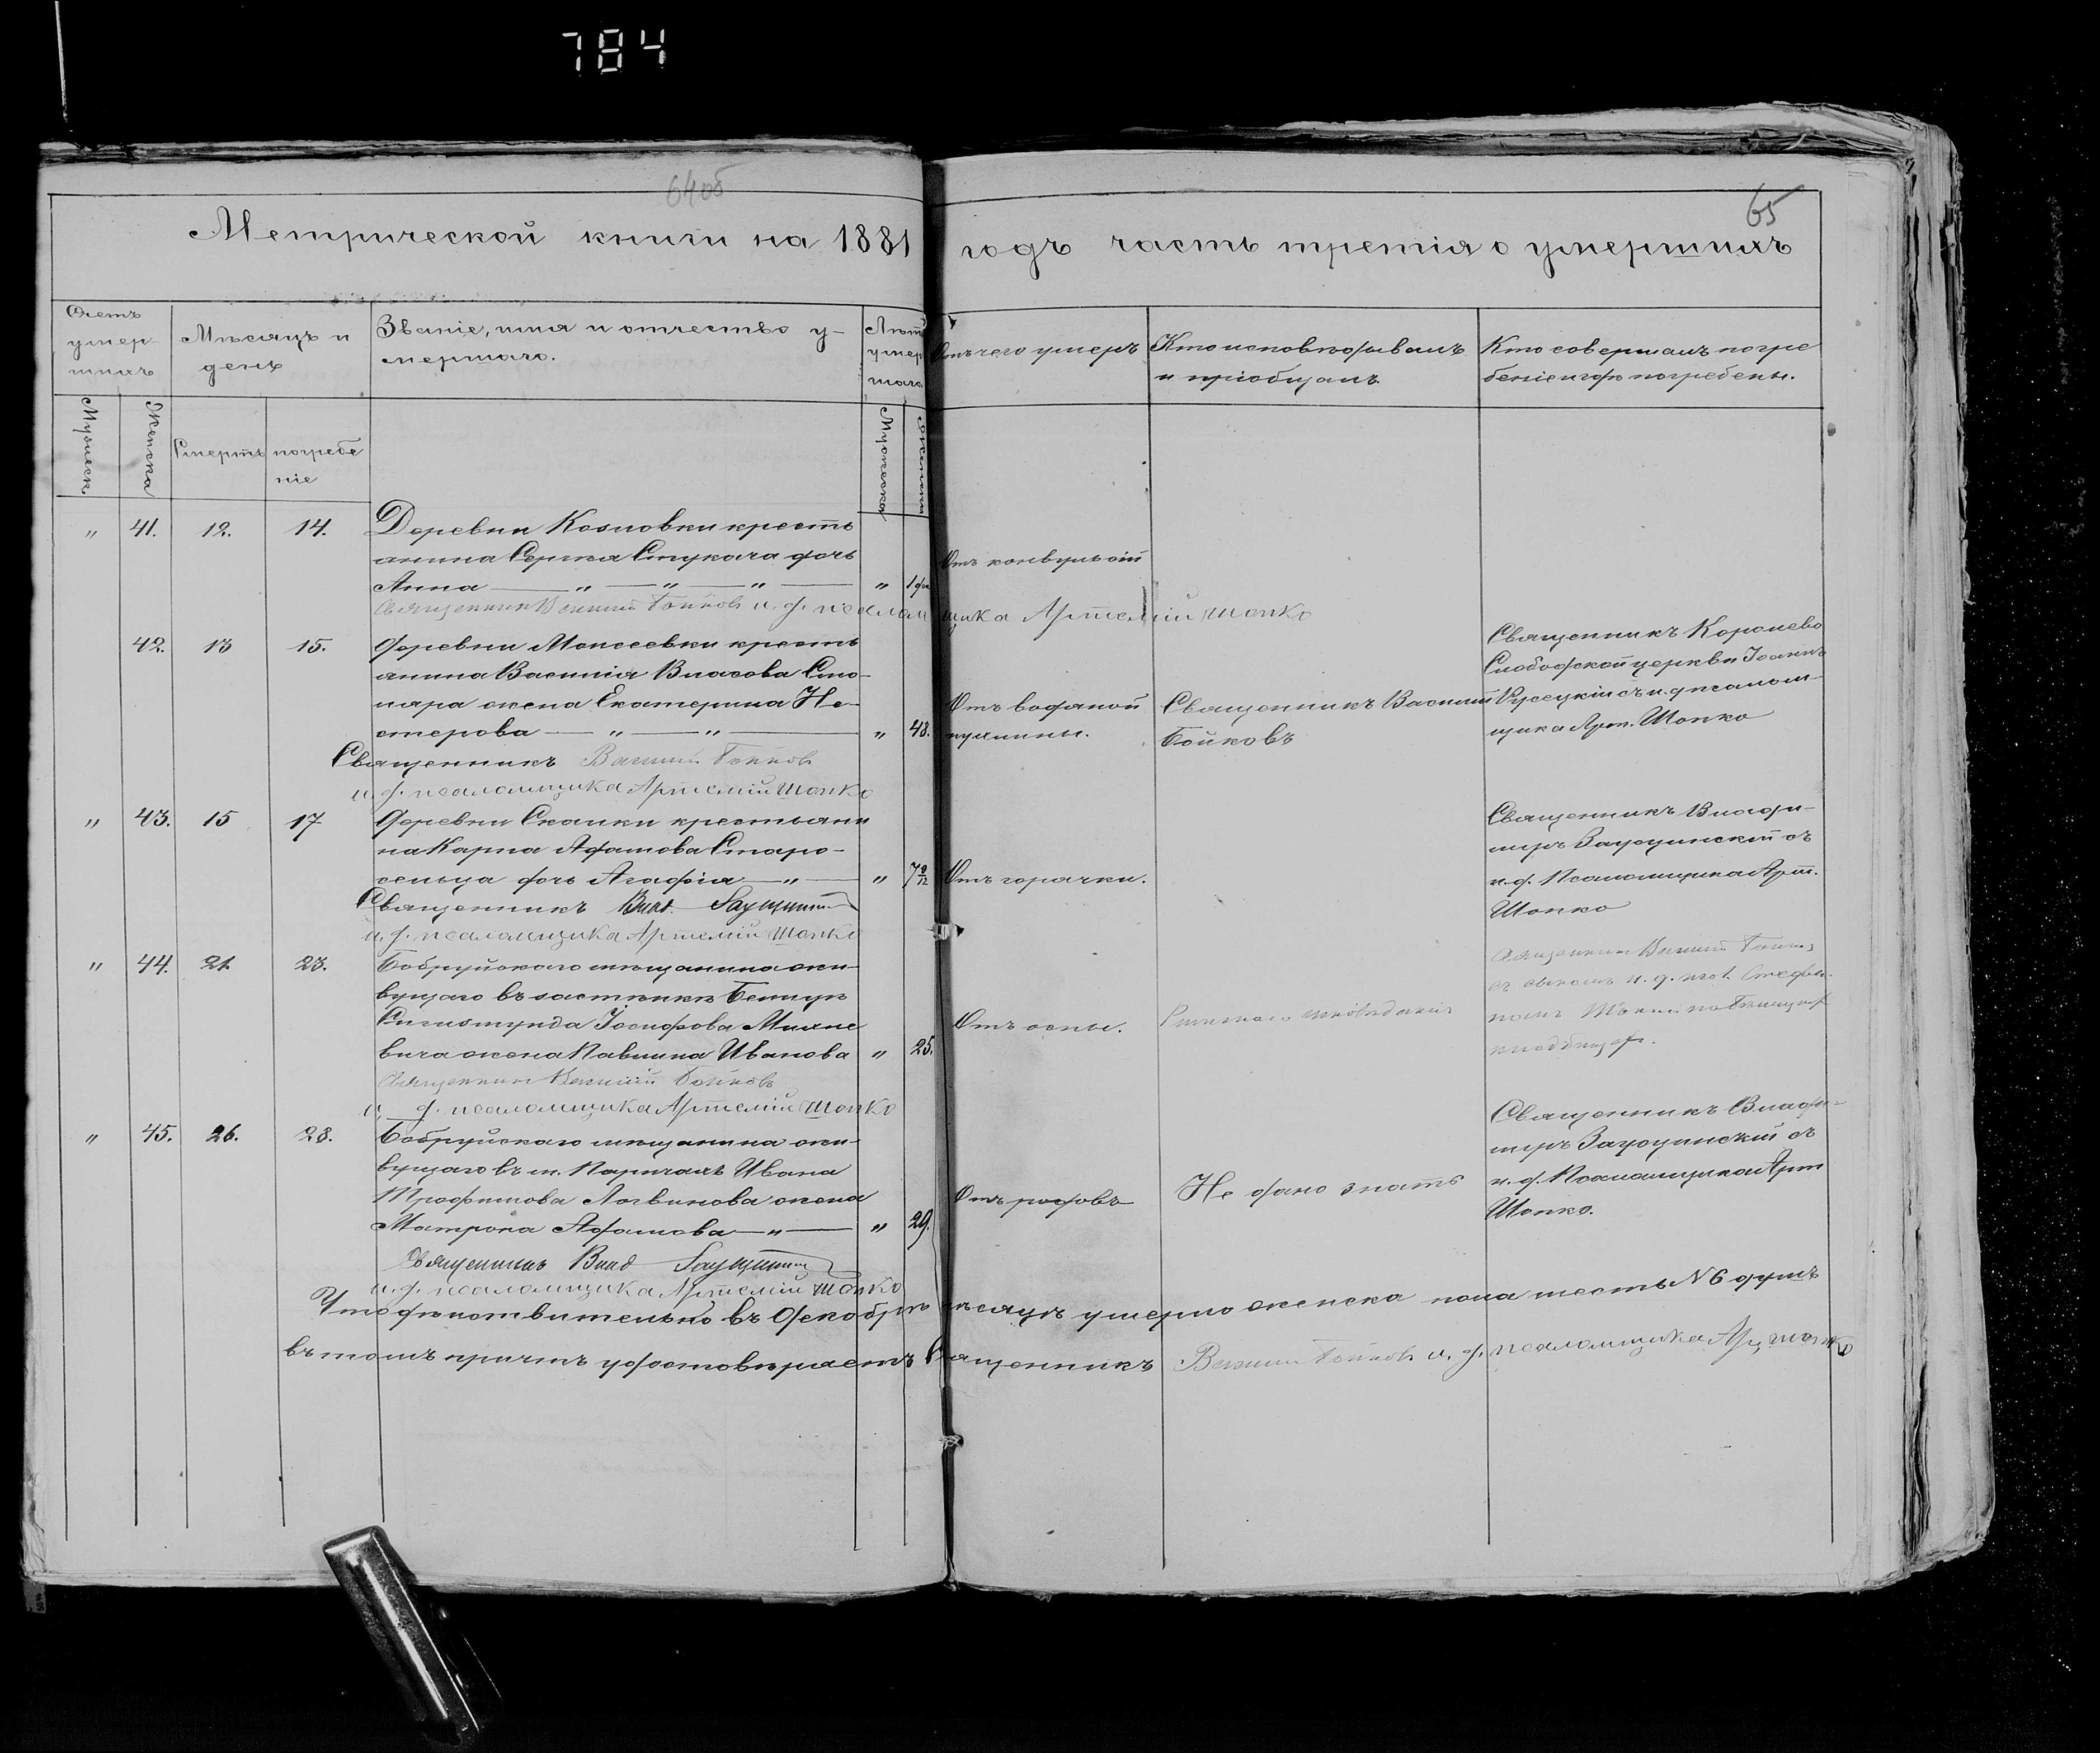 784
64об
65
Метрической книги на 1881 годъ часть третія о умершихъ
Счетъ умер-шихъ
Мѣсяцъ и день
Званіе, имя и отчество у-мершаго.
Лѣта умер шаго
Отъ чего умеръ
Кто исповѣдывалъ и пріобщалъ
Кто совершалъ погре беніе и гдѣ погребены.
Мужеск
Женска
Смерть
погребе ніе
Мужескаго
Женскаго
" 41. 12. 14.
Деревни Козловки кресть
янина Сергія Стукача дочь
Анна — " — " — " — " 1 дн
Отъ конвульсій
Священникъ Василій Бойковъ и. д. псаломщика Артемій Шопко
42. 13 15.
Деревни Моисеевки кресть
янина Василія Власова Сто-
ляра жена Екатерина Не-
стерова — " — " — " 48.
Отъ водяной
пухлины.
Священникъ Василій
Бойковъ
Священникъ Королево
Слободской церкви Іоаннъ
Русецкій съ и. д. псалом-
щика Арт. Шопко
Священникъ Василій Бойковъ
и. д. псаломщика Артемій Шопко
" 43. 15 17
Деревни Скалки крестьяни
на Карпа Адамова Старо-
сельца дочь Агафія — " — "
Отъ горячки.
Священникъ Влади-
миръ Заусцинскій съ
и. д. Псаломщика Арт.
Шопко
Священникъ Влад.
и. д. псаломщика Артемій Шопко
" 44. 21. 23.
Бобруйскаго мѣщанина жи-
вущаго въ застѣнкѣ
Сигизмунда Іосифова
вича жена Павлина Иванова " 25.
Отъ оспы.
Священникъ Василій
Священникъ Василій Бойковъ
и. д. псаломщика Артемій Шопко
" 45. 26. 28.
Бобруйскаго мѣщанина жи-
вущаго въ м. Паричахъ Ивана
Трофимова Логвинова жена
Матрона Адамова — " — " 29.
Отъ родовъ
Не дано знать
Священникъ Влади-
миръ Заусцинскій съ
и. д. Псаломщика Арт
Шопко.
Священникъ Влад
и. д. псаломщика Артемій Шопко
Что дѣйствительно въ Декабрѣ мѣсяцѣ умерло женска пола шесть N 6 душъ
въ томъ причтъ удостовѣряетъ Священникъ Василій Бойковъ и. д. псаломщика Арт. Шопко